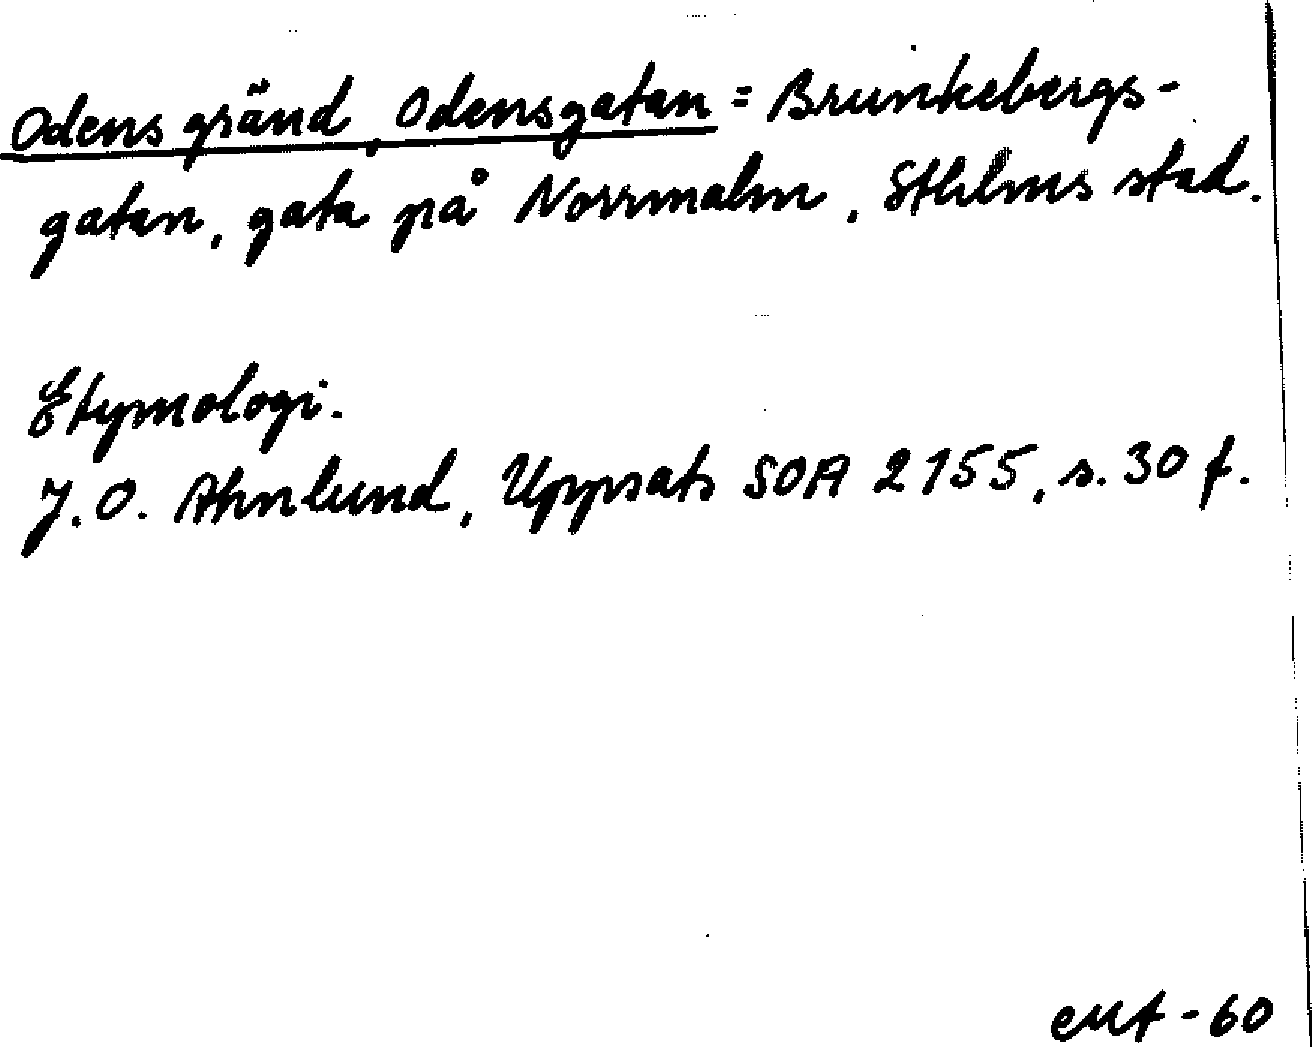 Odens gränd, Odensgatan = Brunkebergs-
gatan, gata på Norrmalm, Sthlms stad.
Etymologi.
J.O. Ahnlund, Uppsats SOA 2155, s. 30 f.
EMA-60